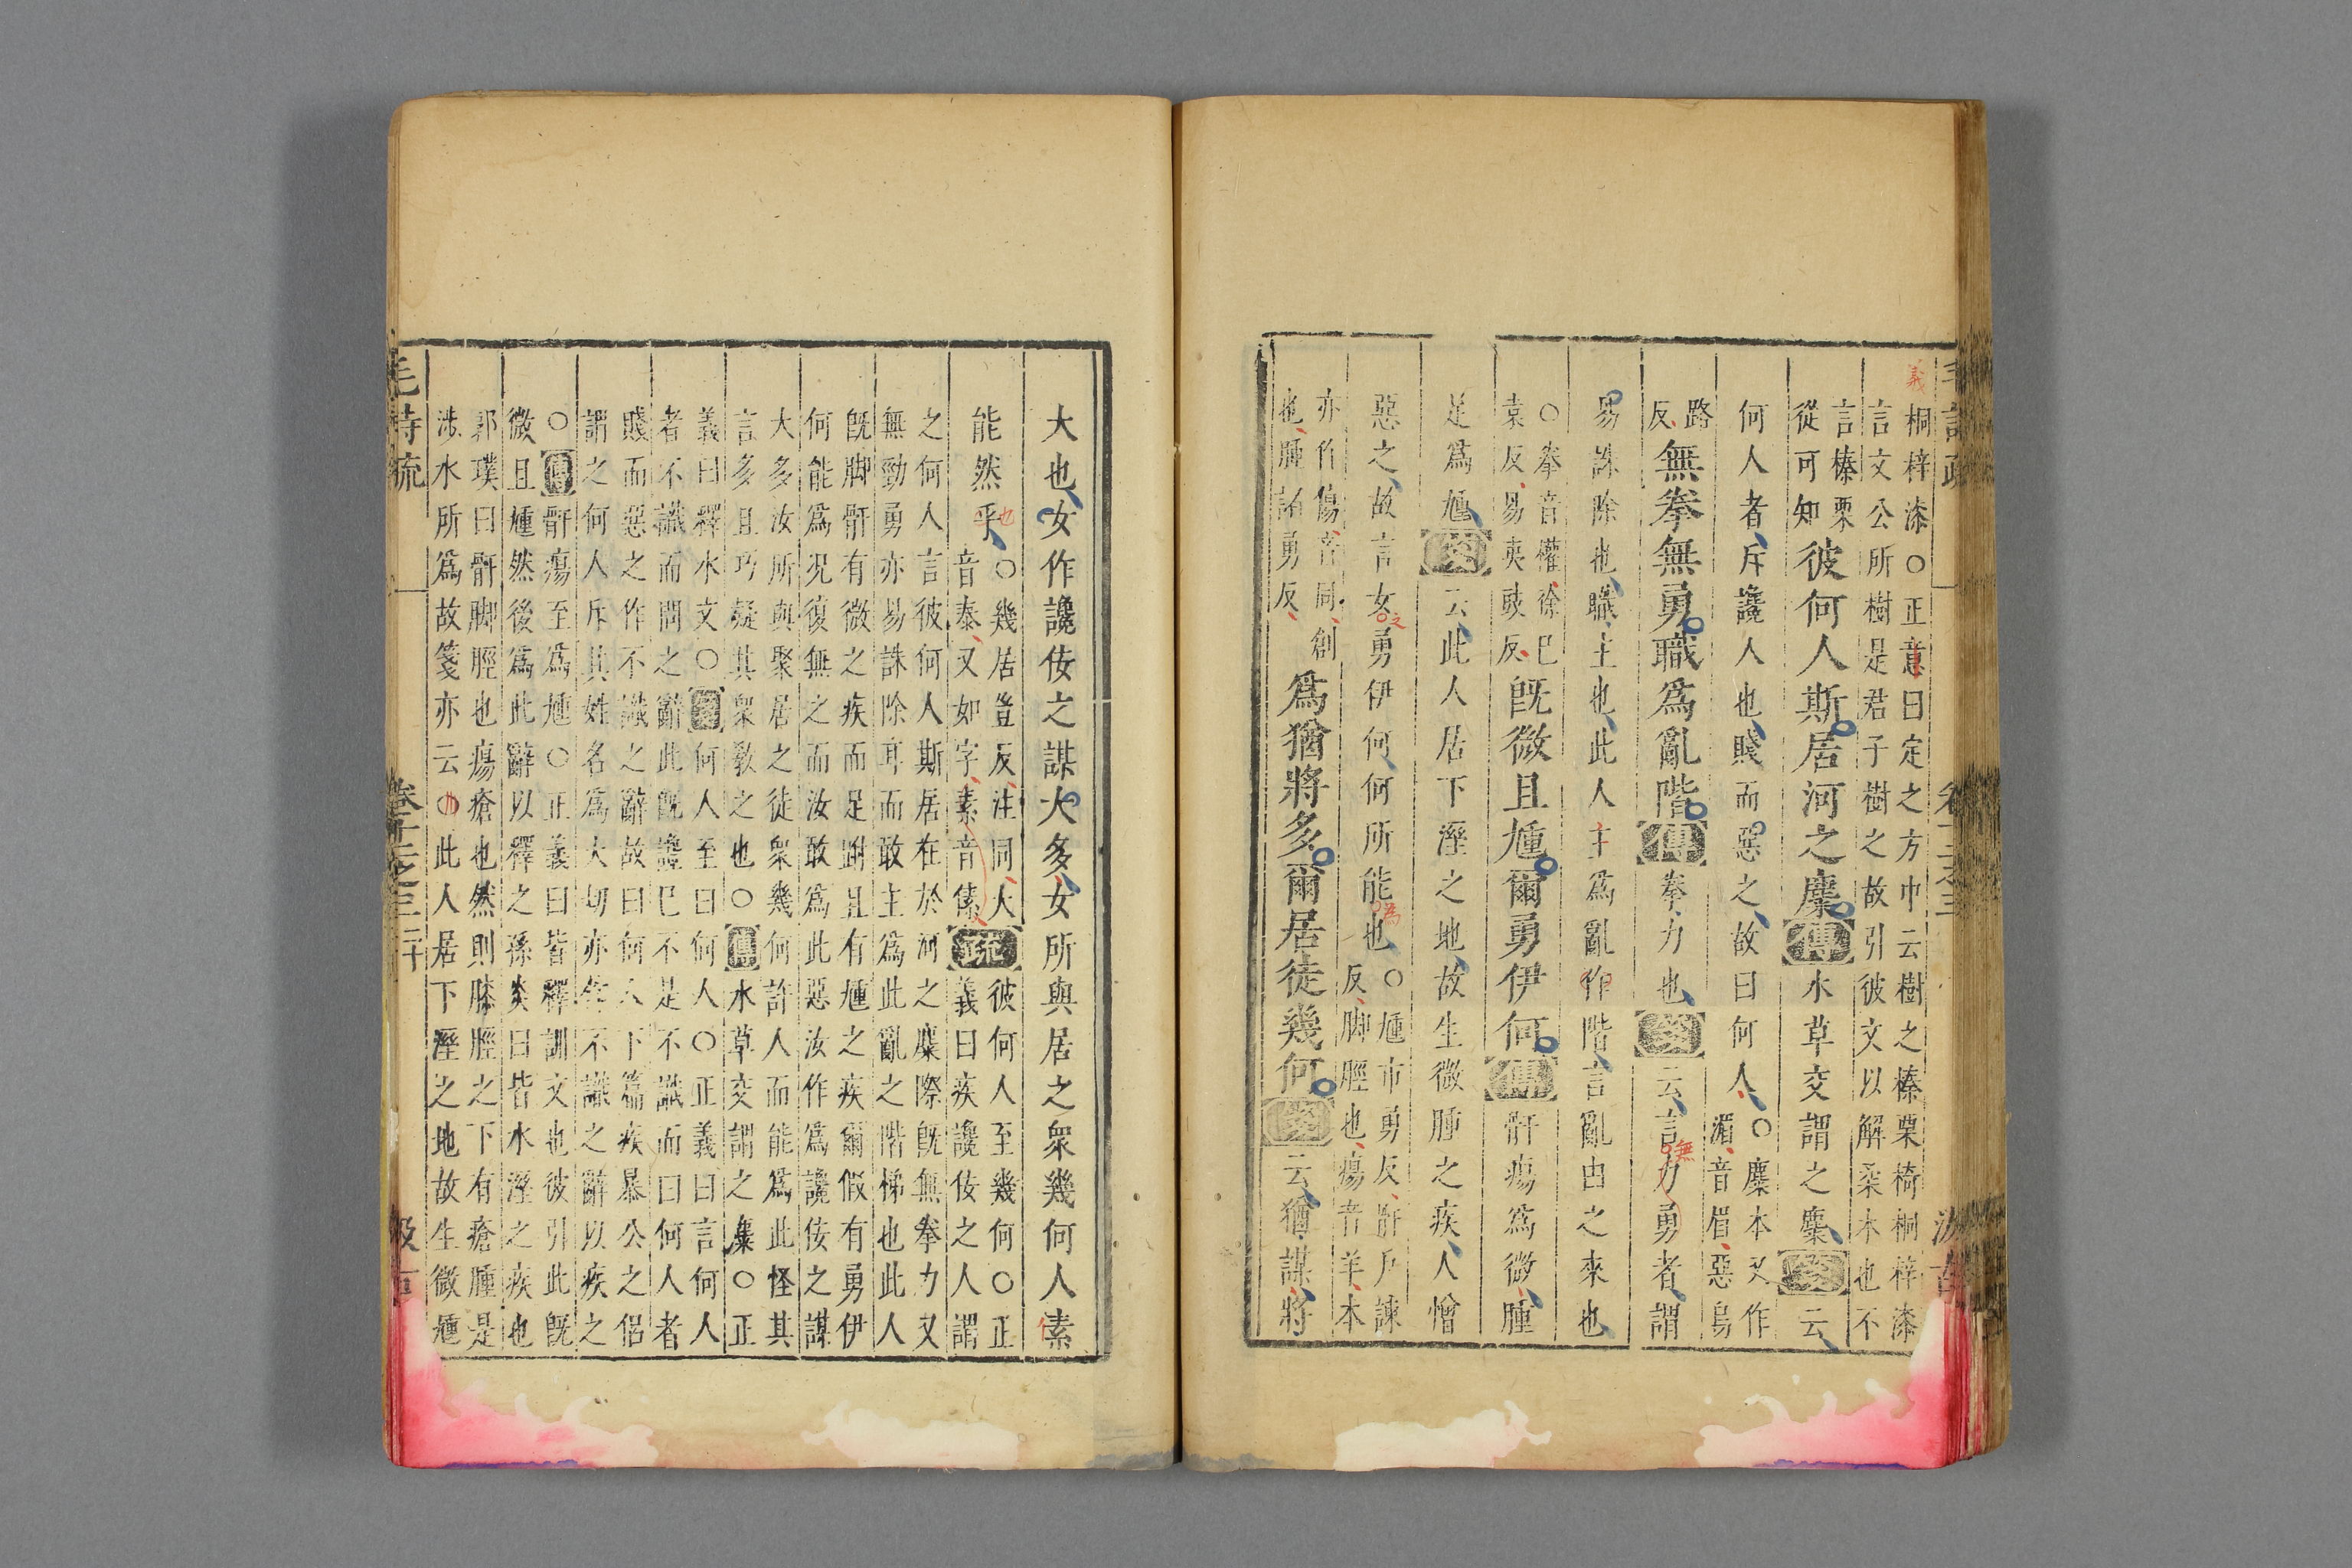 桐梓漆○正意曰定之方巾云樹之榛栗椅桐梓漆
言文公所樹是君子樹之故引彼文以解柔木也不
言榛栗
從可知
彼何人斯居河之麋傳水草交謂之麋箋云
何人者斥讒人也賤而惡之故曰何人
○麋本又作
湄音眉惡烏
路
反
無拳無勇職為亂階傳拳力也箋云言力勇者謂
易誅除也職主也此人主為亂作階言亂由之來也
○拳音權徐巳
袁反易夷豉反
既微且尰爾勇伊何傳骭瘍為微腫
足為尰箋云此人居下溼之地故生微腫之疾人憎
惡之故言女勇伊何何所能也
○尰市勇反骭戶諫
反脚脛也瘍音羊本
亦作傷音同創
也腫諸勇反
為猶將多爾居徒幾何箋云猶謀將
大也女作讒佞之謀大多女所與居之眾幾何人素
能然乎
○幾居豈反注同大
音泰又如字素音傃
疏
彼何人至幾何○正
義曰疾讒佞之人謂
之何人言彼何人斯居在於河之麋際既無拳力又
無勁勇亦易誅除耳而敢主為此亂之階梯也此人
既脚骭有微之疾而足跗且有尰之疾爾假有勇伊
何能為況復無之而汝敢為此惡汝作為讒佞之謀
大多汝所與聚居之徒眾幾何許人而能為此怪其
言多且巧疑其眾教之也○傳水草交謂之麋○正
義曰釋水文○箋何人至曰何人○正義曰言何人
者不識而問之辭此既讒巳不是不識而曰何人者
賤而惡之作不識之辭故曰何人下篇疾暴公之侶
謂之何人斥其姓名為大切亦作不識之辭以疾之
○傳骭瘍至為尰○正義曰皆釋訓文也彼引此既
微且尰然後為此辭以釋之孫炎曰皆水溼之疾也
郭璞曰骭脚脛也瘍瘡也然則膝脛之下有瘡腫是
涉水所為故箋亦云○此人居下溼之地故生微尰
毛詩疏
卷十二之三
二十